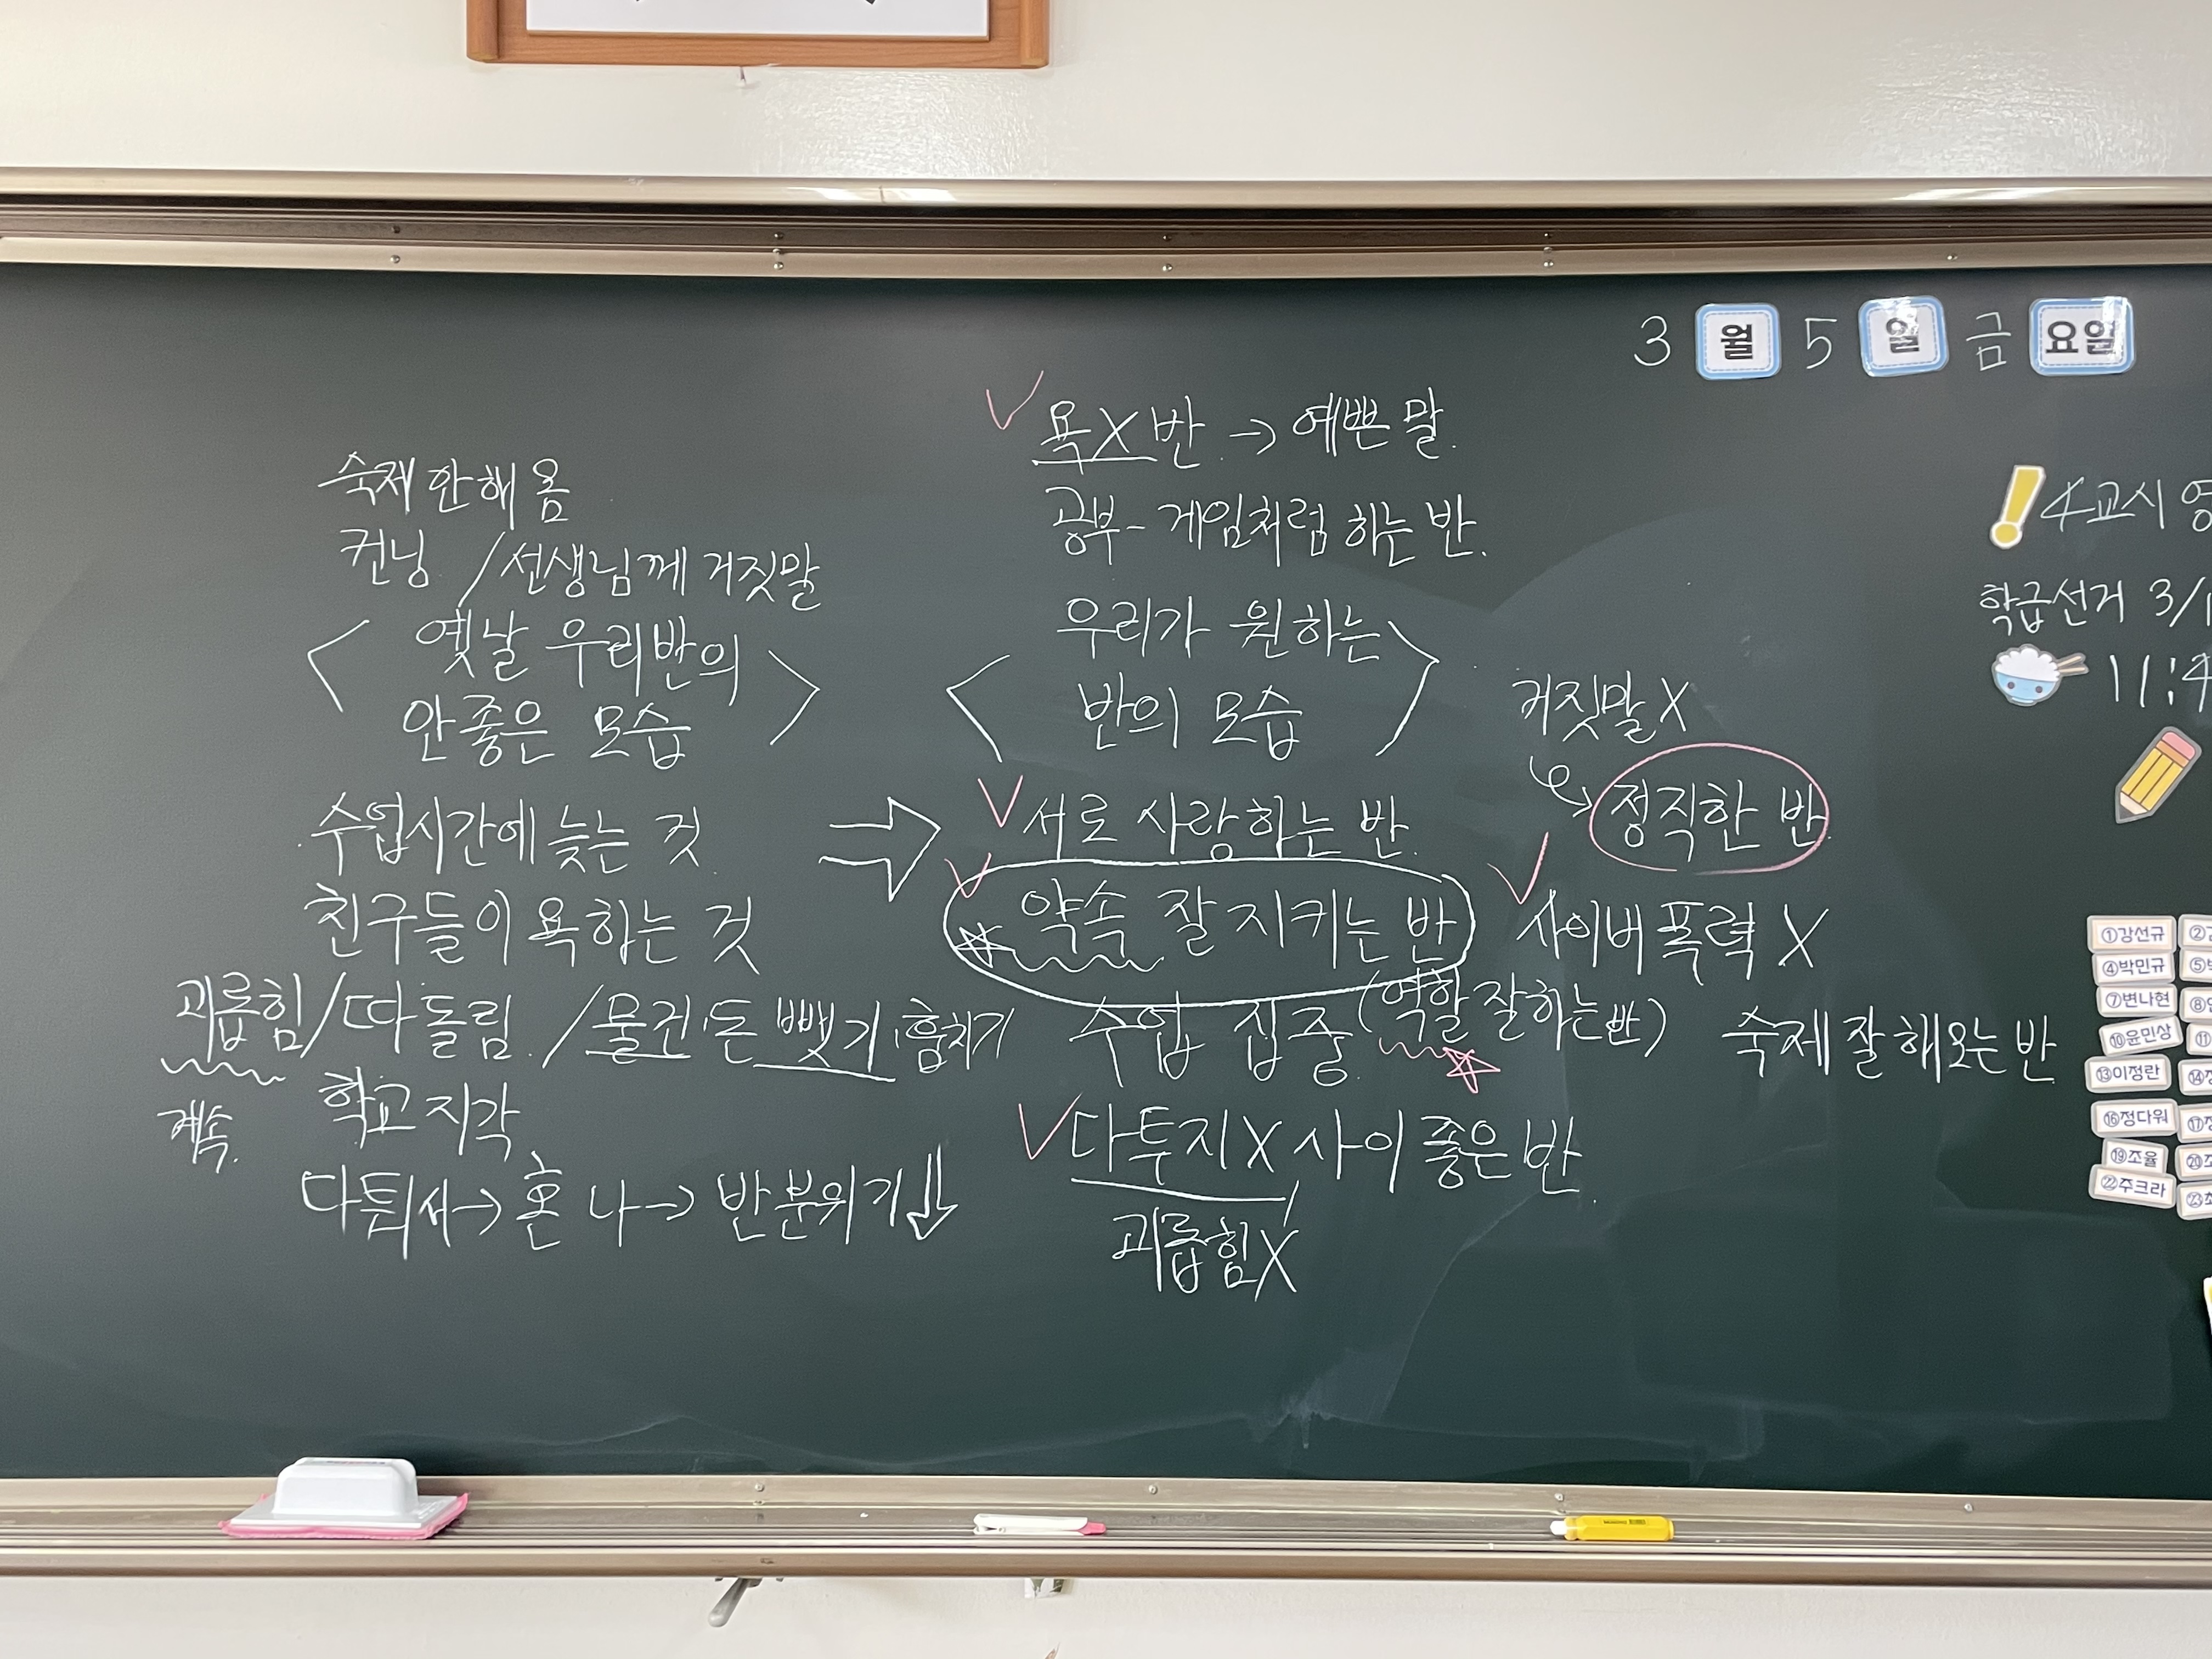 3 월 5 일 금 요일
숙제 안해 옴
컨닝 / 선생님께 거짓말
< 옛날 우리반의
안좋은 모습 >
수업시간에 늦는 것
친구들이 욕하는 것
괴롭힘 / 따돌림. / 물건·돈 뺏기·훔치기
계속.
학교 지각
다퉈서 → 혼나 → 반 분위기 ↓
욕X 반. → 예쁜 말.
공부 - 게임처럼 하는 반.
< 우리가 원하는
반의 모습 >
서로 사랑하는 반.
약속 잘 지키는 반
수업 집중. (역할 잘하는 반)
다투지X 사이 좋은 반.
괴롭힘X
거짓말X
정직한 반.
사이버 폭력 X
숙제 잘 해오는 반.
4교시 영
학급선거 3/1
11:4
①강선규
④박민규
⑦변나현
⑩윤민상 ⑪
⑬이정란
⑯정다워
⑲조율
㉒주크라